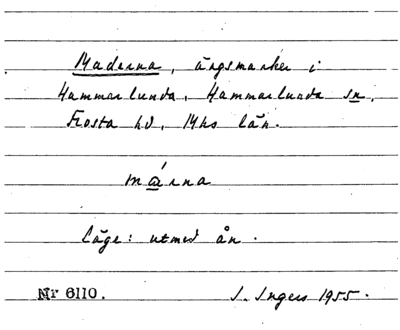 Maderna, ängsmarker i
Hammarlunda, Hammarlunda sn,
Frosta hd, Mhs län.
márna
läge: utmed ån.
Nr 6110. I. Ingers 1955.